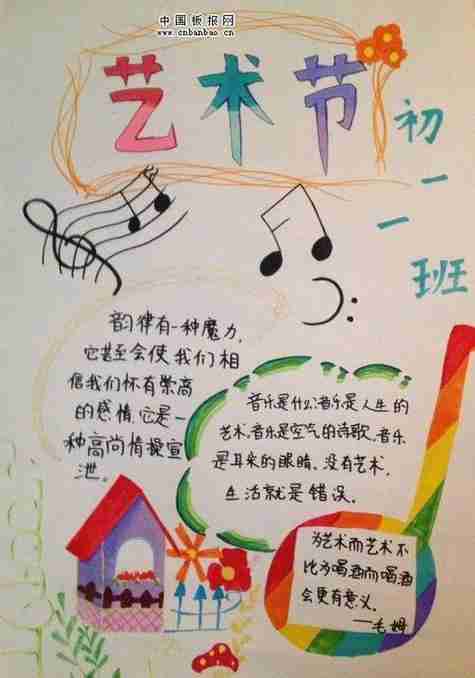 中国板报网
www.cnbanbao.cn
艺术节
初一一班
韵律有一种魔力,
它甚至会使我们相
信我们怀有崇高
的感情.它是一
种高尚情操宣
泄。
音乐是什么:音乐是人生的
艺术.音乐是空气的诗歌.音乐
是耳朵的眼睛、没有艺术,
生活就是错误。
为艺术而艺术不
比为喝酒而喝酒
会更有意义.
——毛姆